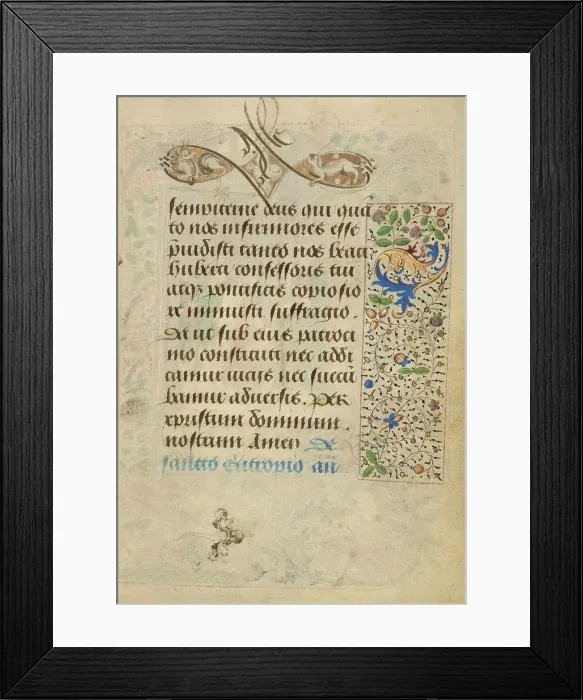 sempiterne deus qui qua
to nos infirmiores esse
p̄uidisti tanto nos beati
huberti confessoris tui
atq3 pontificis copiosio
re muniisti suffragio.
Da ut sub eius patroci
nio constituti nec addi
camur viciis nec succū
bamur aduersis. Per
xpristum dominum.
nostrum Amen De
sancto Eutropio an